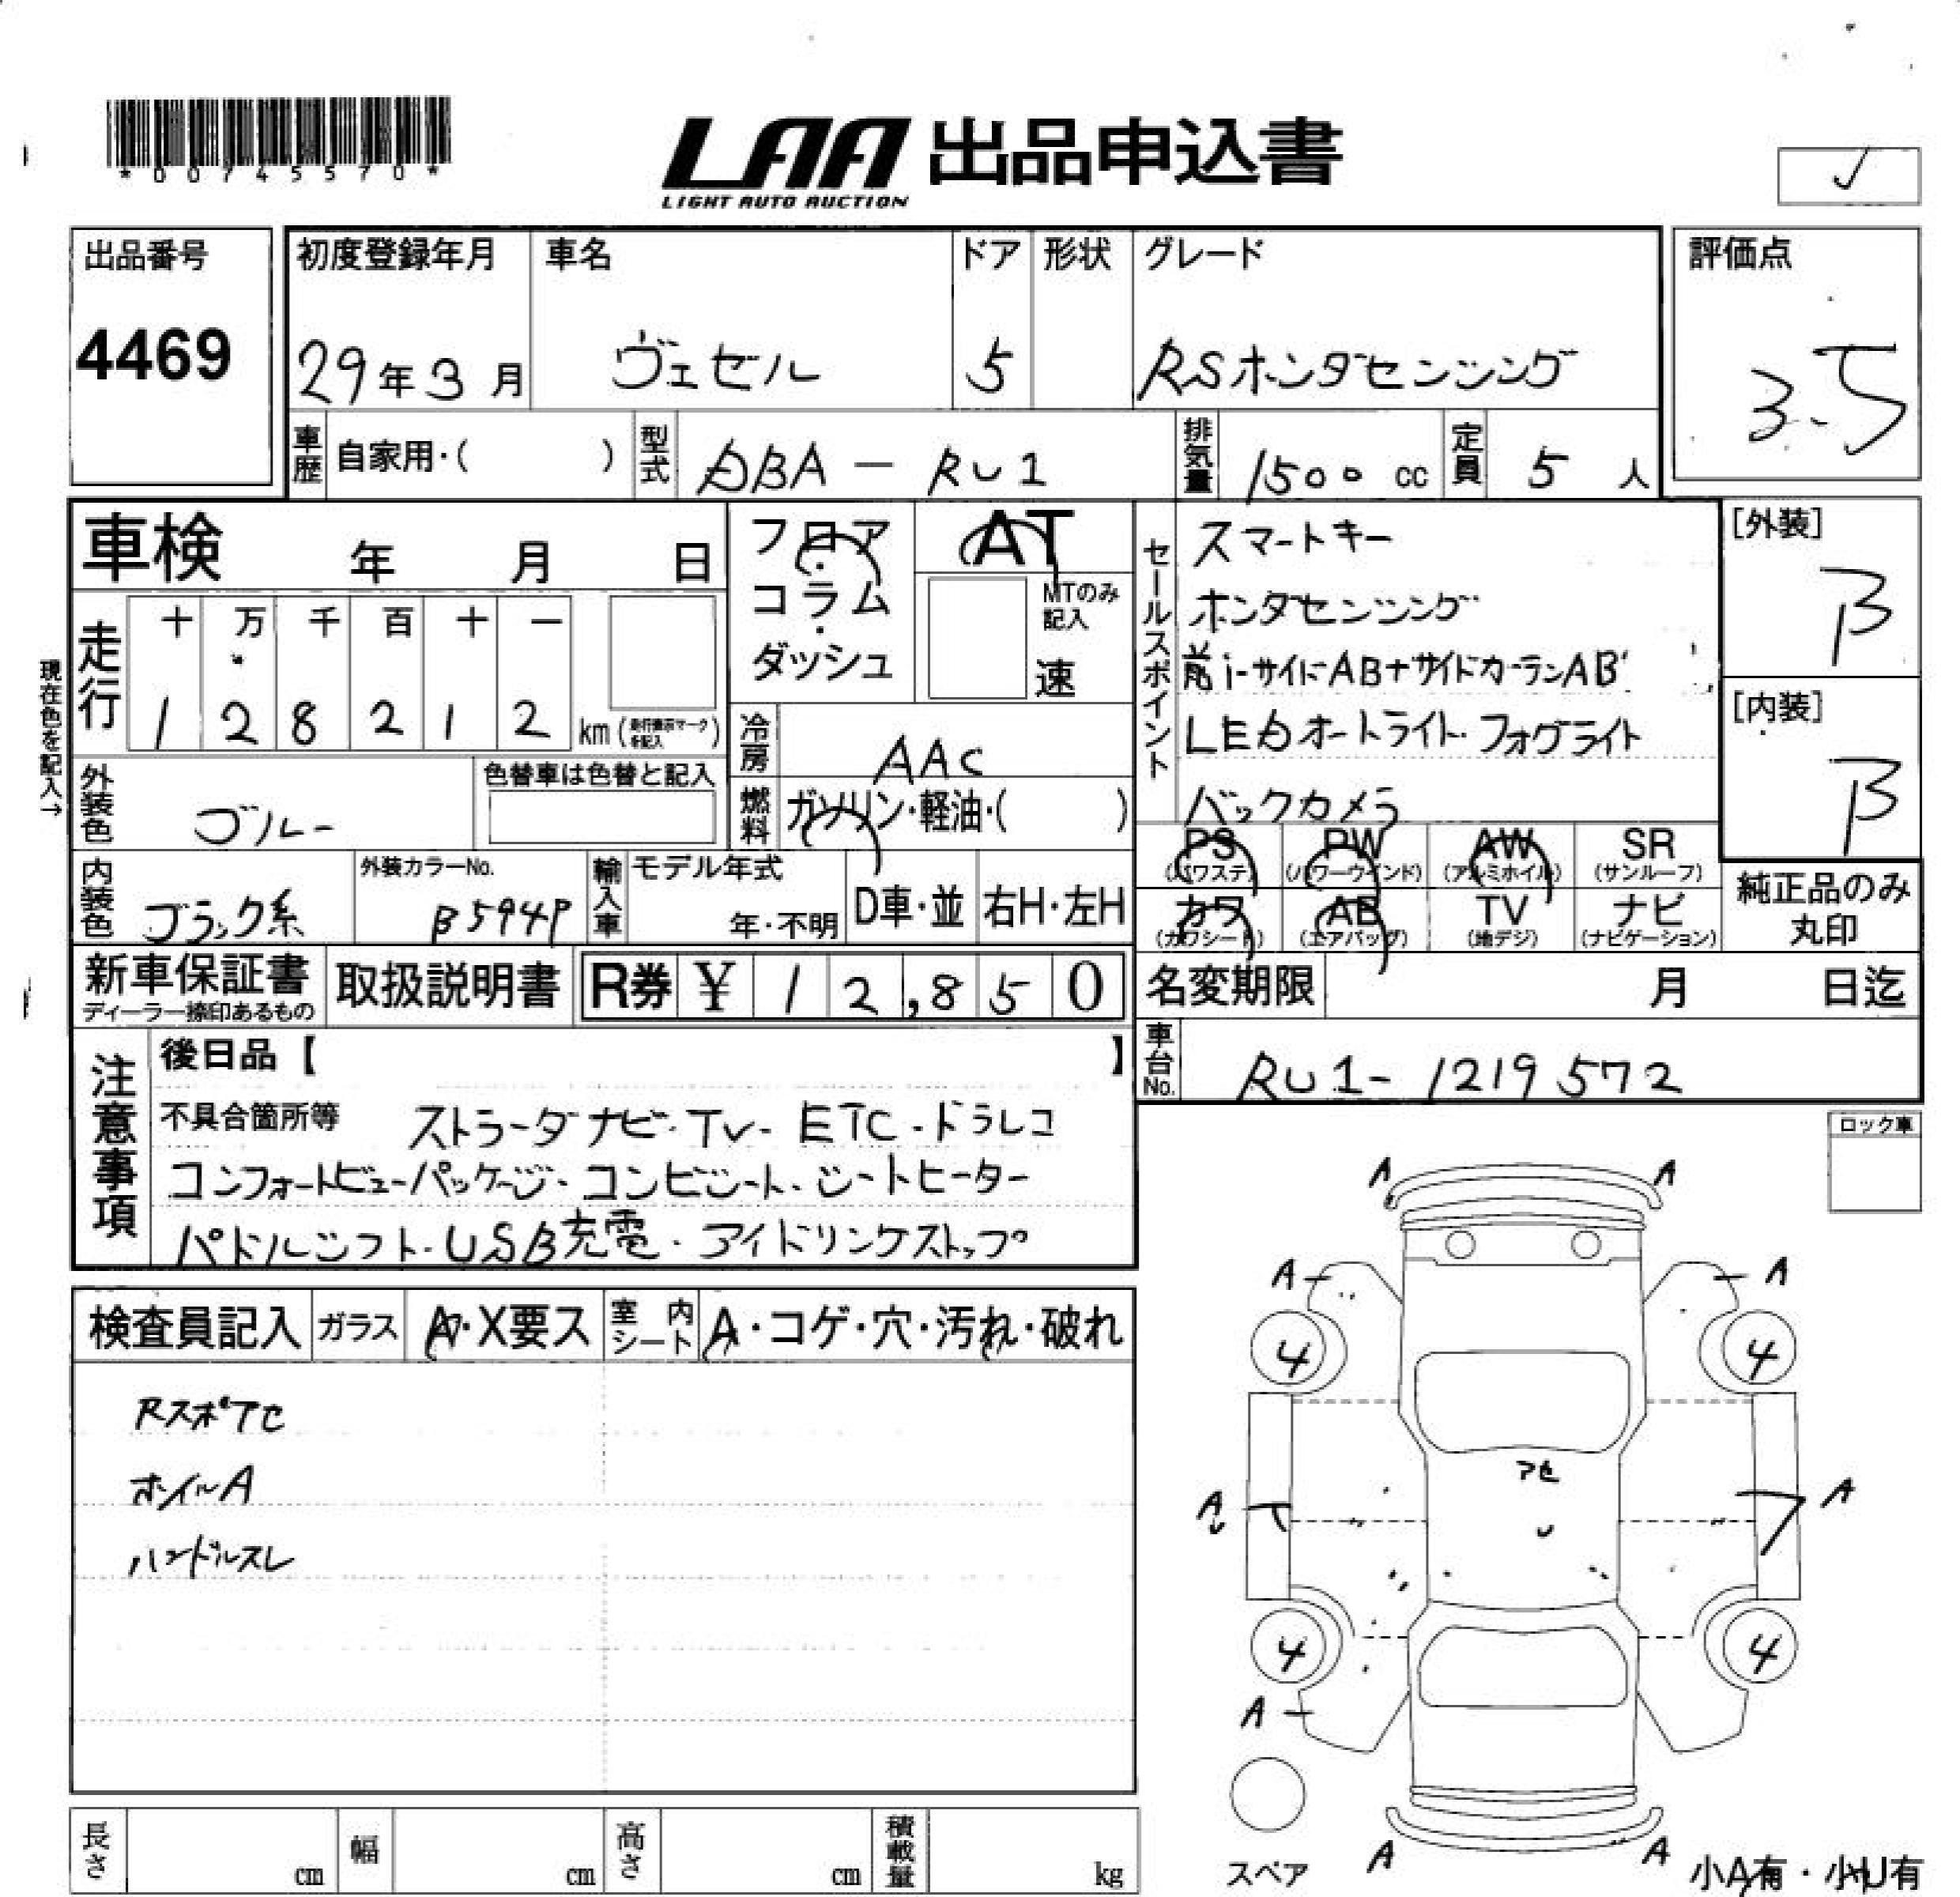 *00745570*
LAA 出品申込書
LIGHT AUTO AUCTION
出品番号
4469
初度登録年月 車名 ドア 形状 グレード
29年3月 ヴェゼル 5 RSホンダセンシング
評価点
3.5
車歴 自家用・( ) 型式 DBA-RU1 排気量 1500cc 定員 5人
車検 年 月 日
フロア・コラム・ダッシュ
AT
MTのみ記入
速
現在色を記入→
走行 十 万 千 百 十 一
1 2 8 2 1 2 km (走行表示マークを記入)
冷房 AAC
燃料 ガソリン・軽油・( )
外装色 ブルー
色替車は色替と記入
内装色 ブラック系
外装カラーNo.
B594P
輸入車 モデル年式
年・不明 D車・並 右H・左H
セールスポイント
スマートキー
ホンダセンシング
前i-サイドAB+サイドカーテンAB
LEDオートライト・フォグライト
バックカメラ
[外装]
B
[内装]
B
PS PW AW SR
(パワステ) (パワーウインド) (アルミホイル) (サンルーフ)
カワ AB TV ナビ
(カワシート) (エアバッグ) (地デジ) (ナビゲーション)
純正品のみ
丸印
新車保証書
ディーラー捺印あるもの
取扱説明書
R券 ¥12,850
名変期限 月 日迄
車台No. RU1-1219572
注意事項
後日品【 】
不具合箇所等 ストラーダナビ・TV・ETC・ドラレコ
コンフォートビューパッケージ・コンビシート・シートヒーター
パドルシフト・USB充電・アイドリングストップ
ロック車
検査員記入 ガラス A・X要ス 室内シート A・コゲ・穴・汚れ・破れ
Rスポアセ
ホイルA
ハンドルスレ
A A
A A
4 4
アセ
A U A
U
4 4
A
A A
スペア
小A有・小U有
長さ cm 幅 cm 高さ cm 積載量 kg